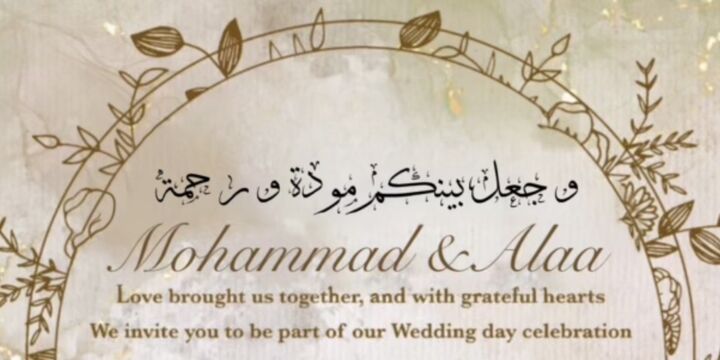 و جعل بينكم مودة و رحمة
Mohammad & Alaa
Love brought us together, and with grateful hearts
We invite you to be part of our Wedding day celebration